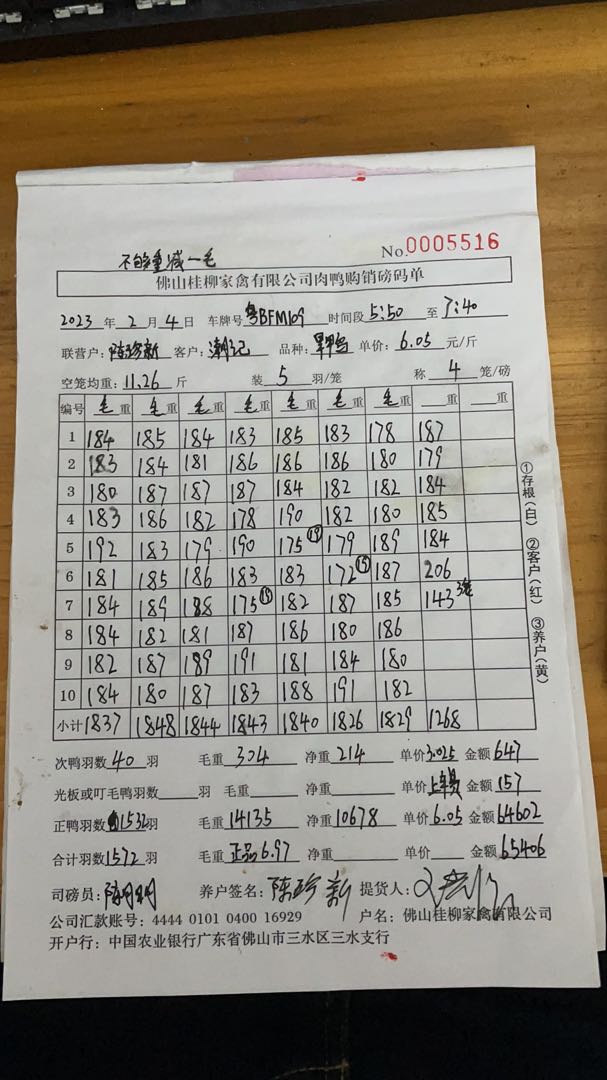 No.0005516
不够重减一毛
佛山桂柳家禽有限公司肉鸭购销磅码单
2023 年 2 月 4 日 车牌号 粤BFM109 时间段 5:50 至 7:40
联营户: 陈珍新 客户: 潮记 品种: 单价: 6.05 元/斤
空笼均重: 11.26 斤 装 5 羽/笼 称 4 笼/磅
编号 毛重 毛重 毛重 毛重 毛重 毛重 毛重 重 重
1 184 185 184 183 185 183 178 187
2 183 184 181 186 186 186 180 179
3 180 187 187 187 184 182 182 184
4 183 186 182 178 190 182 180 185
5 192 183 179 190 175 ⑲ 179 189 184
6 181 185 186 183 183 172 187 206
7 184 189 188 175 182 187 185 143
8 184 182 181 187 186 180 186
9 182 187 189 191 181 184 180
10 184 180 187 183 188 191 182
小计 1837 1848 1844 1843 1840 1826 1829 1268
①存根(白) ②客户(红) ③养户(黄)
次鸭羽数 40 羽 毛重 304 净重 214 单价 3.025 金额 647
光板或叮毛鸭羽数 羽 毛重 净重 单价 金额 157
正鸭羽数 1532 羽 毛重 14135 净重 10678 单价 6.05 金额 64602
合计羽数 1572 羽 毛重 正品6.97 净重 单价 金额 65406
司磅员: 养户签名: 陈珍新 提货人:
公司汇款账号: 4444 0101 0400 16929 户名: 佛山桂柳家禽有限公司
开户行: 中国农业银行广东省佛山市三水区三水支行